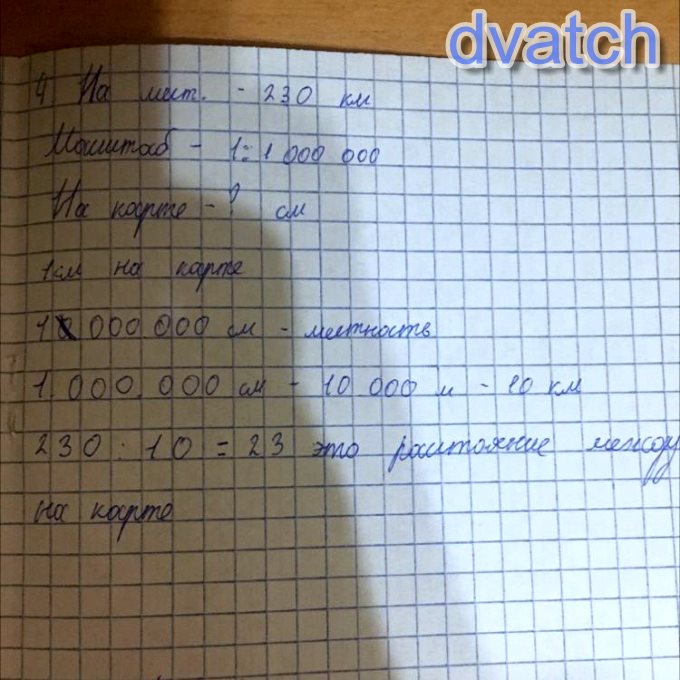 dvatch
4 На мест. - 230 км
Масштаб - 1:1 000 000
На карте - ? см
1см на карте
1 000 000 см - местность
1 000 000 см - 10 000 м - 10 км
230 : 10 = 23 это расстояние между
на карте